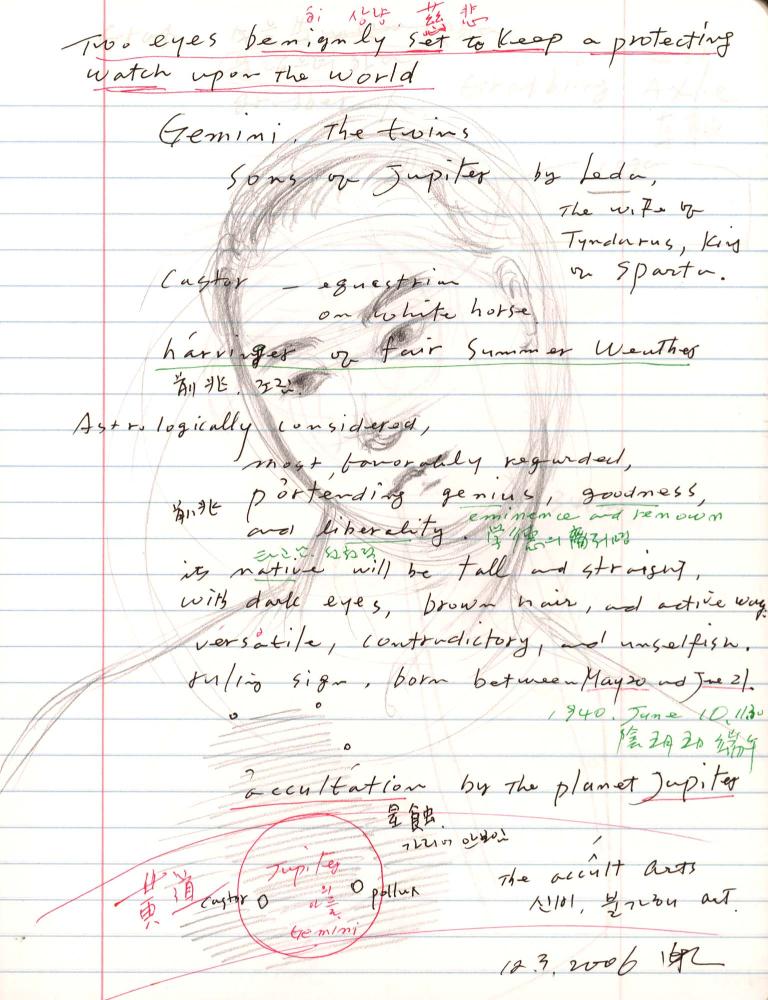 상냥. 慈悲
Two eyes benignly set to keep a protecting
watch upon the world
Gemini. The twins
sons of Jupiter by Leda,
The wife of
Tyndarus, King
of Sparta.
Castor — equestrian
on white horse
harvinger of fair Summer Weather
前兆.
Astrologically considered,
most favorably regarded,
前兆 portending genius, goodness,
eminence and renown
and liberality.
its native will be tall and straight,
with dark eyes, brown hair, and active way.
versatile, contradictory, and unselfish.
ruling sign. born between May 20 and June 21.
1940. June 10. 11:30
陰 5月 5日 端午
accultation by The planet Jupiter
星蝕.
가리어 안보임
黄道
Jupiter
의
아들
Gemini
Castor
pollux
The accult arts
신비, 불가해 art.
12. 3. 2006